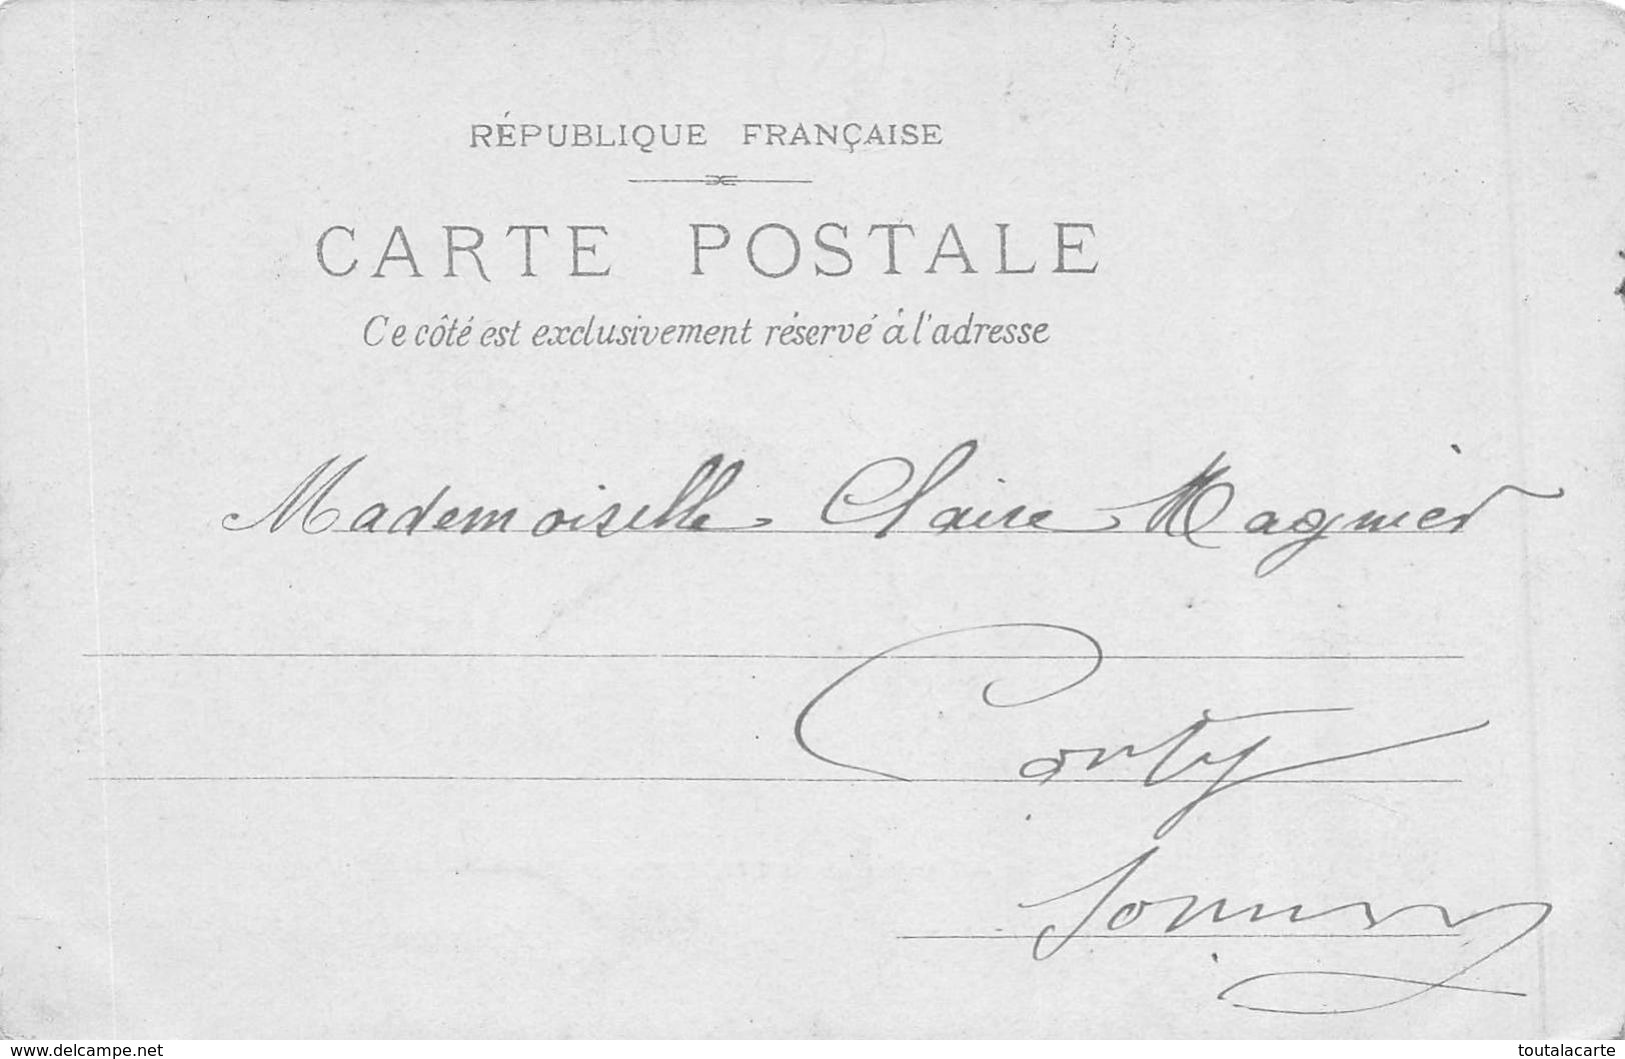 RÉPUBLIQUE FRANÇAISE
CARTE POSTALE
Ce côté est exclusivement réservé à l'adresse
Mademoiselle Claire Magnier
Conty
Somme
www.delcampe.net
toutalacarte